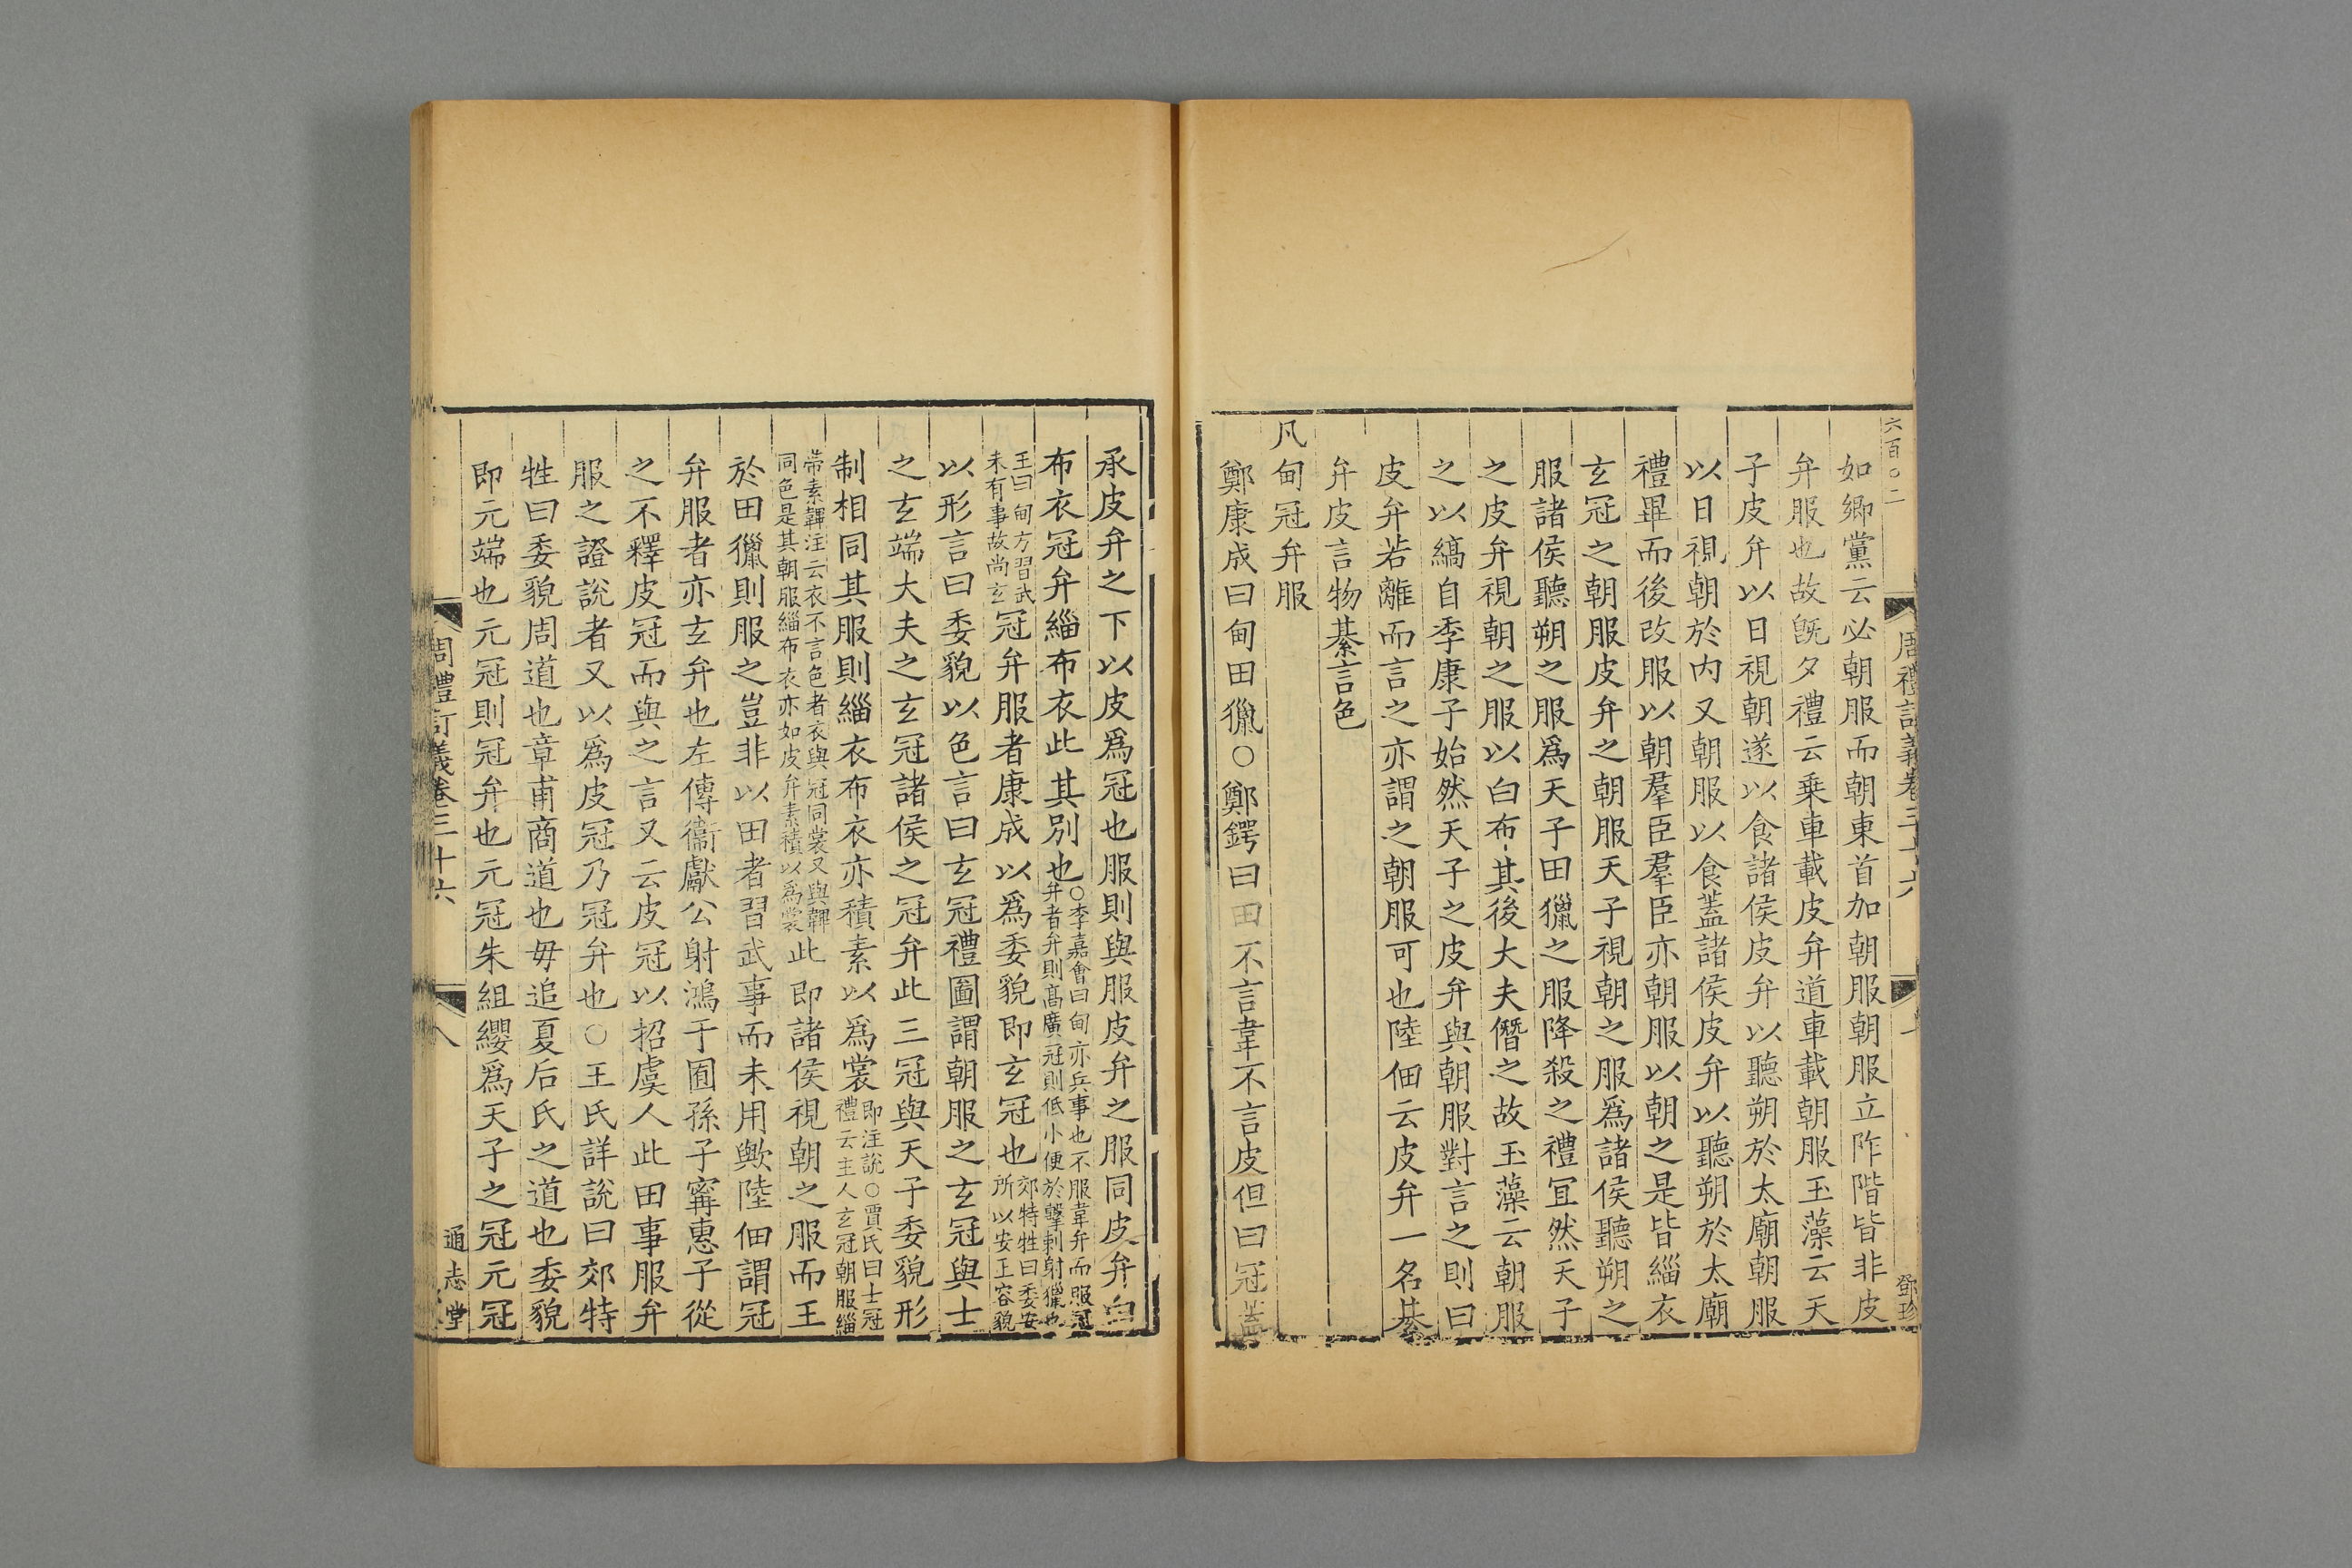 六百〇二
周禮訂義卷三十六
鄧珍
如鄉黨云必朝服而朝東首加朝服朝服立阼階皆非皮
弁服也故旣夕禮云乗車載皮弁道車載朝服玉藻云天
子皮弁以日視朝遂以食諸侯皮弁以聽朔於太廟朝服
以日視朝於内又朝服以食蓋諸侯皮弁以聽朔於太廟
禮畢而後改服以朝羣臣羣臣亦朝服以朝之是皆緇衣
玄冠之朝服皮弁之朝服天子視朝之服爲諸侯聽朔之
服諸侯聽朔之服爲天子田獵之服降殺之禮冝然天子
之皮弁視朝之服以白布其後大夫僭之故玉藻云朝服
之以縞自季康子始然天子之皮弁與朝服對言之則曰
皮弁若離而言之亦謂之朝服可也陸佃云皮弁一名綦
弁皮言物綦言色
凡甸冠弁服
鄭康成曰甸田獵○鄭鍔曰田不言韋不言皮但曰冠蓋
承皮弁之下以皮爲冠也服則與服皮弁之服同皮弁白
布衣冠弁緇布衣此其别也○李嘉會曰甸亦兵事也不服韋弁而服冠弁者弁則髙廣冠則低小便於擊剌射獵也
王曰甸方習武未有事故尚玄冠弁服者康成以爲委貌即玄冠也郊特牲曰委安所以安正容貌
以形言曰委貌以色言曰玄冠禮圖謂朝服之玄冠與士
之玄端大夫之玄冠諸侯之冠弁此三冠與天子委貌形
制相同其服則緇衣布衣亦積素以爲裳即注說○賈氏曰士冠禮云主人玄冠朝服緇
帶素韠注云衣不言色者衣與冠同裳又與韠同色是其朝服緇布衣亦如皮弁素積以爲裳此即諸侯視朝之服而王
於田獵則服之豈非以田者習武事而未用歟陸佃謂冠
弁服者亦玄弁也左傳衞獻公射鴻于囿孫子甯惠子從
之不釋皮冠而與之言又云皮冠以招虞人此田事服弁
服之證說者又以爲皮冠乃冠弁也○王氏詳說曰郊特
牲曰委貌周道也章甫商道也毋追夏后氏之道也委貌
即元端也元冠則冠弁也元冠朱組纓爲天子之冠元冠
周禮訂義卷三十六
八
通志堂